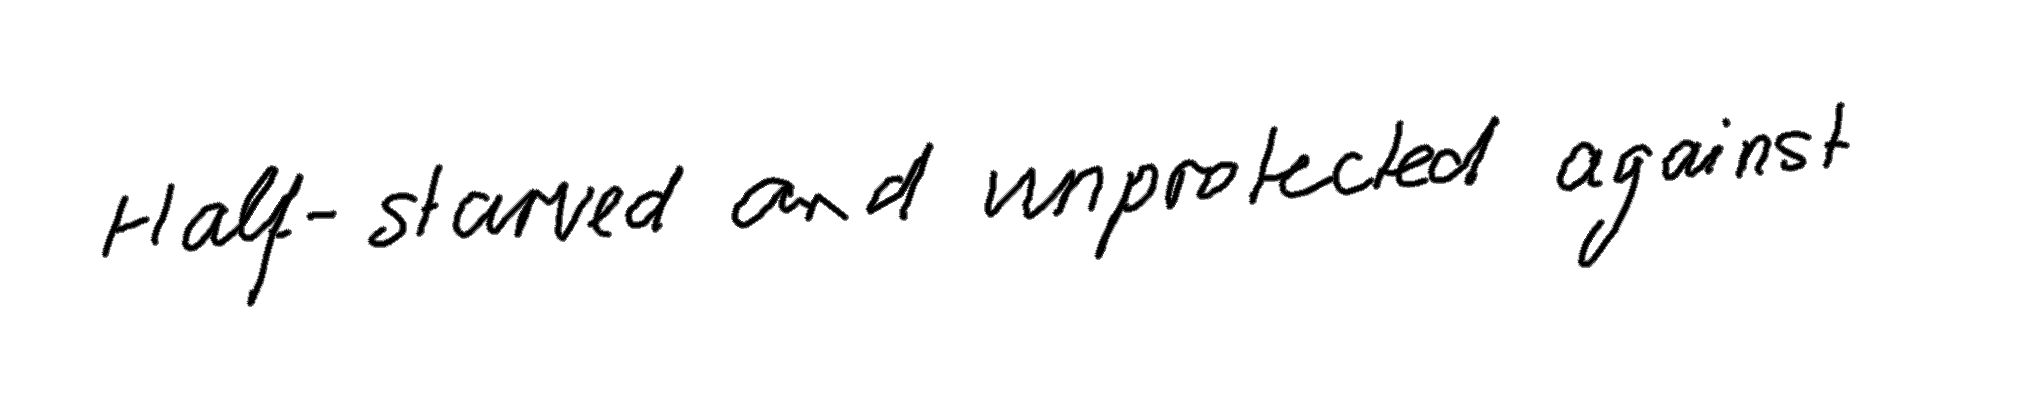 Half-starved and unprotected against